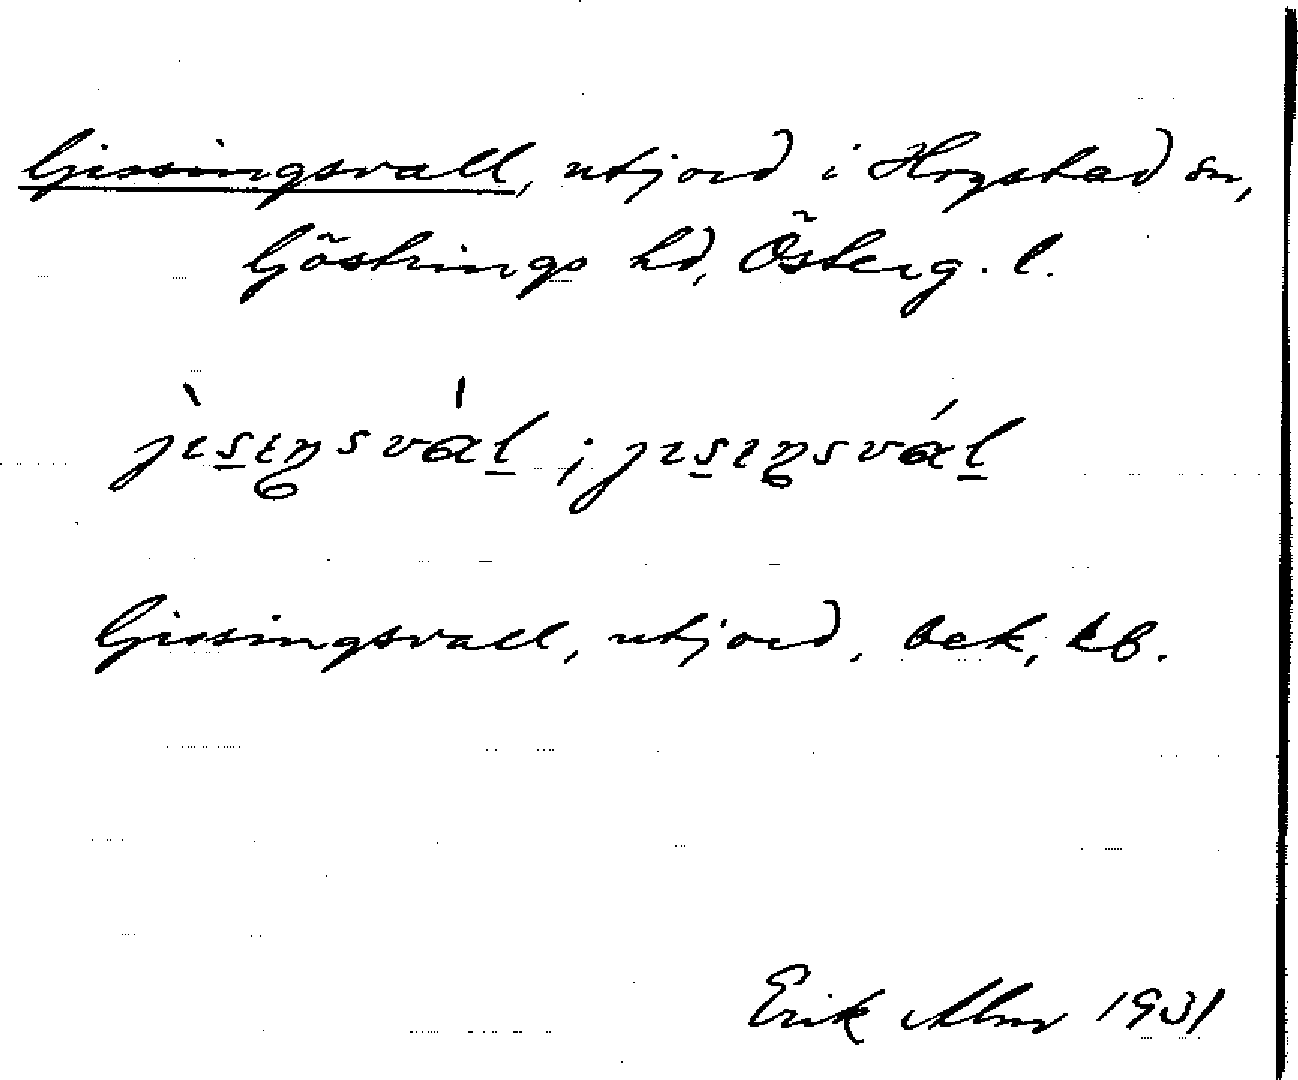 Gissingsvall, utjord i Hogstad sn,
Göstrings hd, Österg. l.
jìsıŋsvál; jısıŋsvál
Gissingsvall, utjord, bek, kb.
Erik Alm 1931